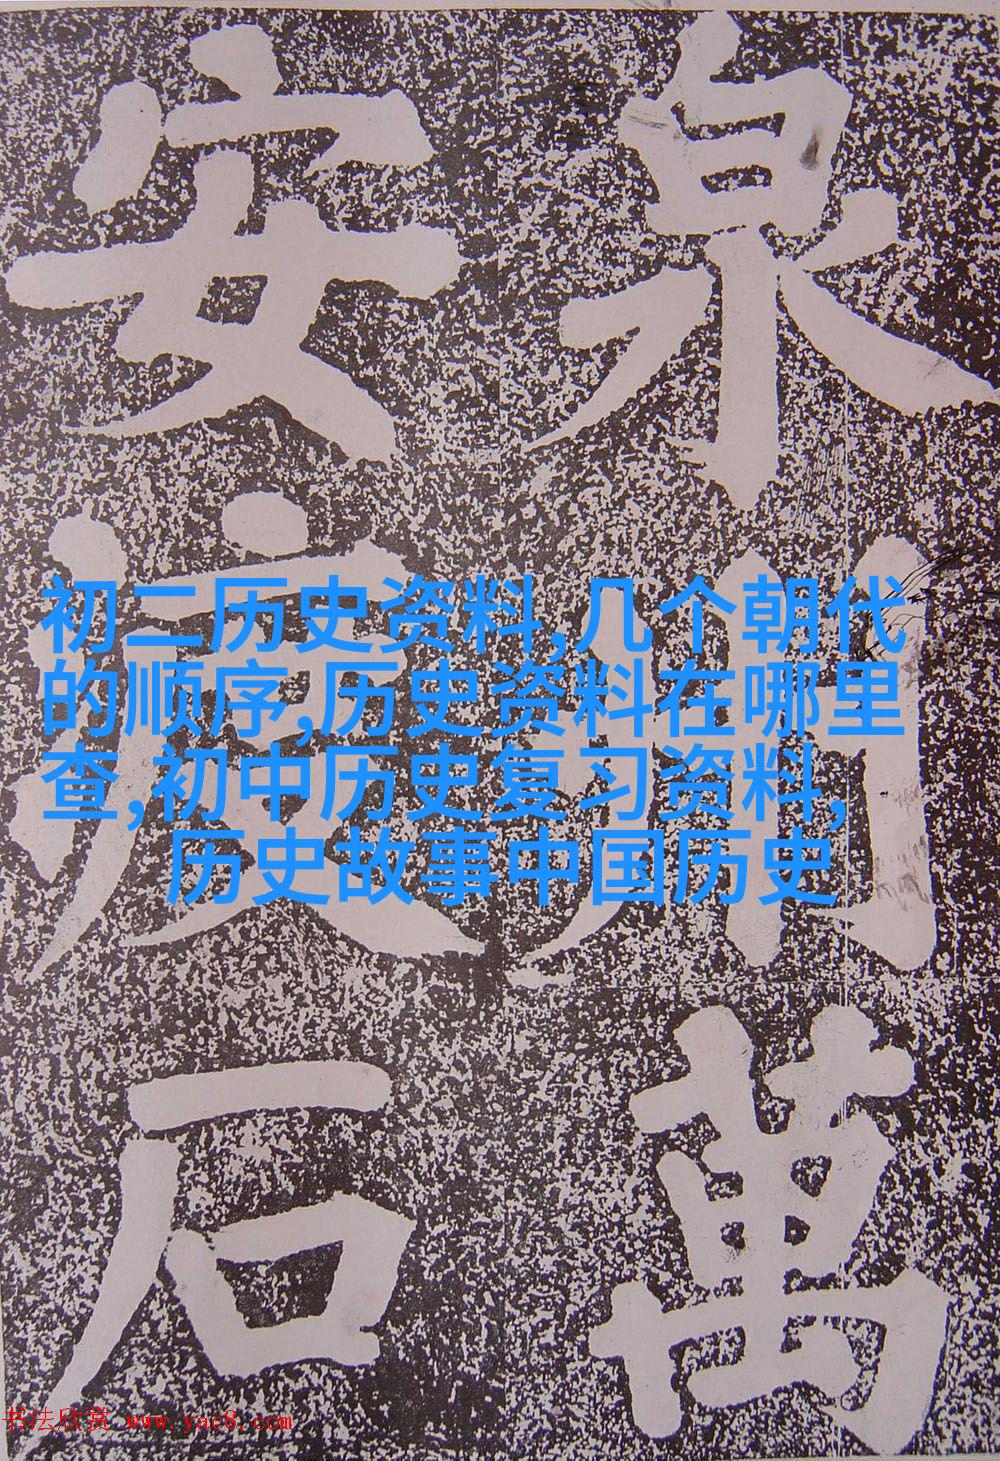 泉州萬
安渡石
初二历史资料,几个朝代
的顺序,历史资料在哪里
查,初中历史复习资料,
历史故事中国历史
书法欣赏 www.yac8.com